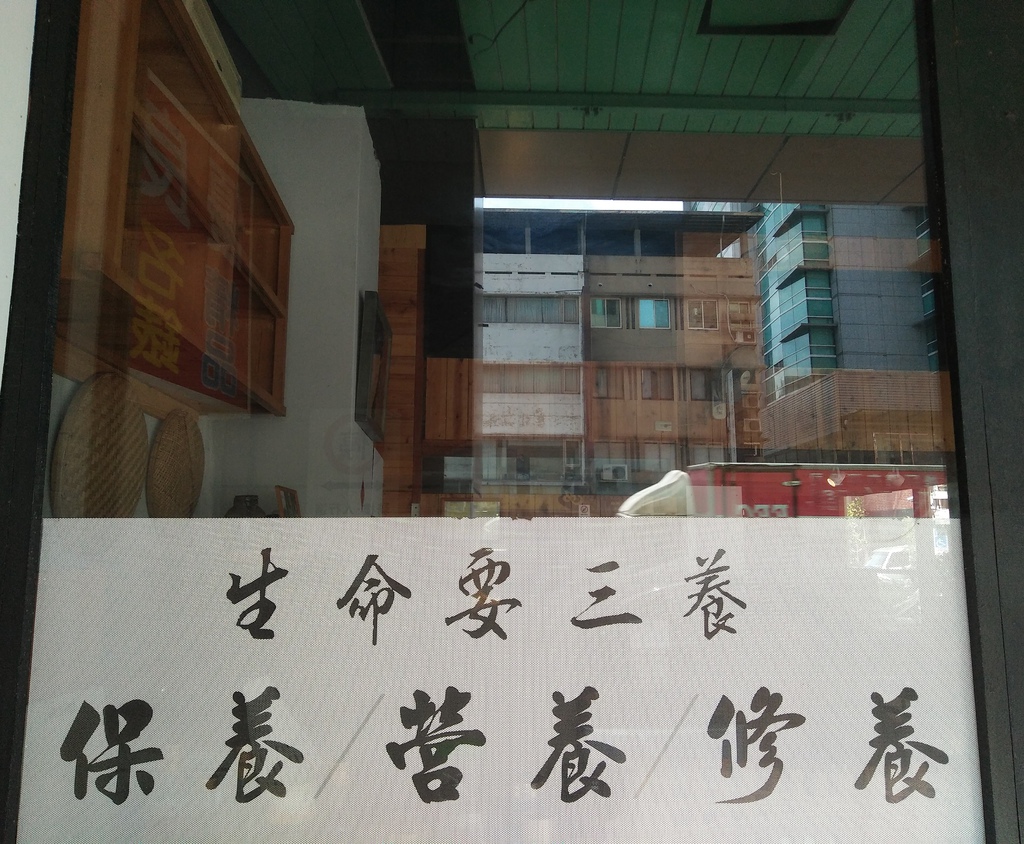 生命要三養
保養/營養/修養